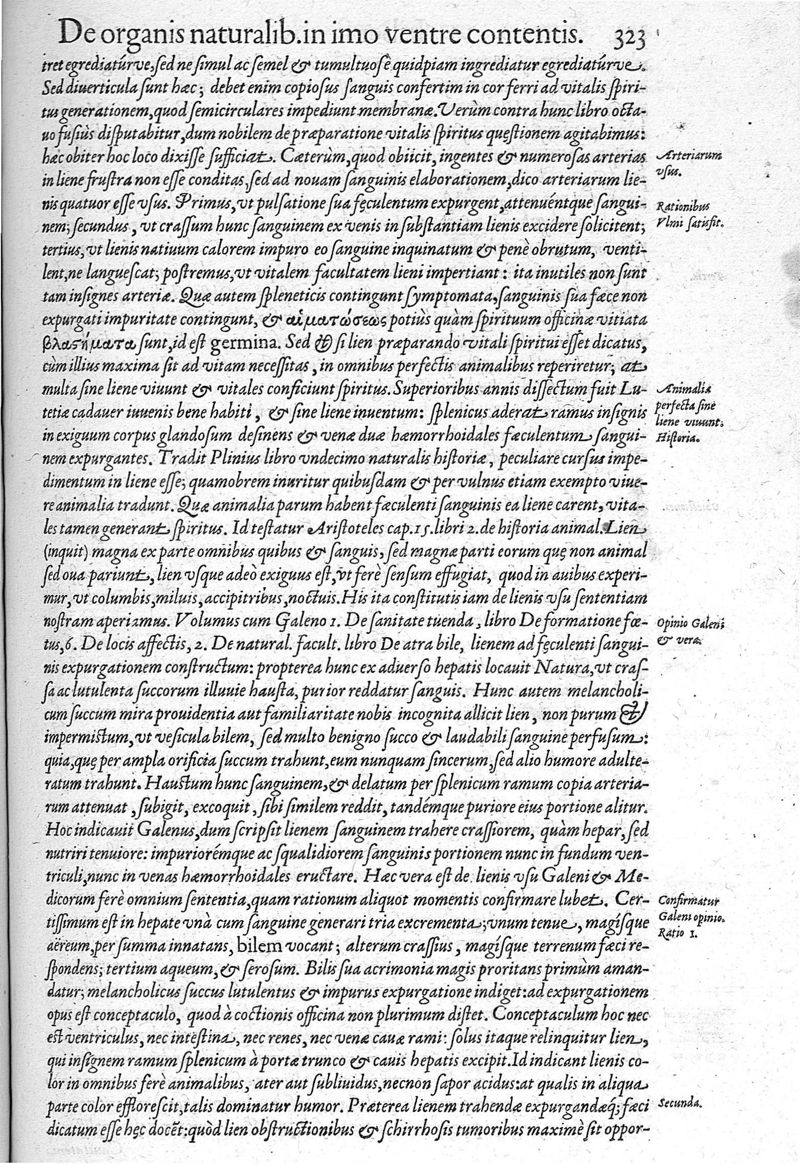 De organis naturalib. in imo ventre contentis. 323
tret egrediatúrve, sed ne simul ac semel & tumultuosè quidpiam ingrediatur egrediatúrve.
Sed diuerticula sunt hæc; debet enim copiosus sanguis confertim in cor ferri ad vitalis spiri-
tus generationem, quod semicirculares impediunt membranæ. Verùm contra hunc libro octa-
uo fusiùs disputabitur, dum nobilem de præparatione vitalis spiritus questionem agitabimus:
hæc obiter hoc loco dixisse sufficiat. Cæterùm, quod obiicit, ingentes & numerosas arterias
in liene frustra non esse conditas, sed ad nouam sanguinis elaborationem, dico arteriarum lie-
nis quatuor esse vsus. Primus, vt pulsatione sua fęculentum expurgent, attenuéntque sangui-
nem; secundus, vt crassum hunc sanguinem ex venis in substantiam lienis excidere solicitent;
tertius, vt lienis natiuum calorem impuro eo sanguine inquinatum & penè obrutum, venti-
lent, ne languescat; postremus, vt vitalem facultatem lieni impertiant: ita inutiles non sunt
tam insignes arteriæ. Quæ autem spleneticis contingunt symptomata, sanguinis sua fæce non
expurgati impuritate contingunt, & αἱματώσεως potiùs quàm spirituum officinæ vitiata
βλαστήματα sunt, id est germina. Sed & si lien præparando vitali spiritui esset dicatus,
cùm illius maxima sit ad vitam necessitas, in omnibus perfectis animalibus reperiretur; at
multa sine liene viuunt & vitales conficiunt spiritus. Superioribus annis dissectum fuit Lu-
tetiæ cadauer iuuenis bene habiti, & sine liene inuentum: splenicus aderat ramus insignis
in exiguum corpus glandosum desinens & venæ duæ hæmorrhoidales fæculentum sangui-
nem expurgantes. Tradit Plinius libro vndecimo naturalis historiæ, peculiare cursus impe-
dimentum in liene esse; quamobrem inuritur quibusdam & per vulnus etiam exempto viue-
re animalia tradunt. Quæ animalia parum habent fæculenti sanguinis ea liene carent, vita-
les tamen generant spiritus. Id testatur Aristoteles cap. 15. libri 2. de historia animal. Lien
(inquit) magna ex parte omnibus quibus & sanguis, sed magnæ parti eorum quę non animal
sed oua pariunt, lien vsque adeò exiguus est, vt ferè sensum effugiat, quod in auibus experi-
mur, vt columbis, miluis, accipitribus, noctuis. His ita constitutis iam de lienis vsu sententiam
nostram aperiamus. Volumus cum Galeno 1. De sanitate tuenda, libro De formatione fœ-
tus, 6. De locis affectis, 2. De natural. facult. libro De atra bile, lienem ad fęculenti sangui-
nis expurgationem constructum: propterea hunc ex aduerso hepatis locauit Natura, vt cras-
sa ac lutulenta succorum illuuie hausta, purior reddatur sanguis. Hunc autem melancholi-
cum succum mira prouidentia aut familiaritate nobis incognita allicit lien, non purum &
impermistum, vt vesicula bilem, sed multo benigno succo & laudabili sanguine perfusum:
quia, quę per ampla orificia succum trahunt, eum nunquam sincerum, sed alio humore adulte-
ratum trahunt. Haustum hunc sanguinem, & delatum per splenicum ramum copia arteria-
rum attenuat, subigit, excoquit, sibi similem reddit, tandémque puriore eius portione alitur.
Hoc indicauit Galenus, dum scripsit lienem sanguinem trahere crassiorem, quàm hepar, sed
nutriri tenuiore: impuriorémque ac squalidiorem sanguinis portionem nunc in fundum ven-
triculi, nunc in venas hæmorrhoidales eructare. Hæc vera est de lienis vsu Galeni & Me-
dicorum ferè omnium sententia, quam rationum aliquot momentis confirmare lubet. Cer-
tissimum est in hepate vnà cum sanguine generari tria excrementa; vnum tenue, magísque
aëreum, per summa innatans, bilem vocant; alterum crassius, magísque terrenum fæci re-
spondens; tertium aqueum, & serosum. Bilis sua acrimonia magis proritans primùm aman-
datur; melancholicus succus lutulentus & impurus expurgatione indiget: ad expurgationem
opus est conceptaculo, quod à coctionis officina non plurimum distet. Conceptaculum hoc nec
est ventriculus, nec intestina, nec renes, nec venæ cauæ rami: solus itaque relinquitur lien,
qui insignem ramum splenicum à portæ trunco & cauis hepatis excipit. Id indicant lienis co-
lor in omnibus ferè animalibus, ater aut subliuidus, necnon sapor acidus: at qualis in aliqua
parte color efflorescit, talis dominatur humor. Præterea lienem trahendæ expurgandæq; fæci
dicatum esse hęc docēt: quòd lien obstructionibus & schirrhosis tumoribus maximè sit oppor-
Arteriarum
vsus.
Rationibus
Vlmi satisfit.
Animalia
perfecta sine
liene viuunt.
Historia.
Opinio Galeni
& vera.
Confirmatur
Galeni opinio.
Ratio 1.
Secunda.